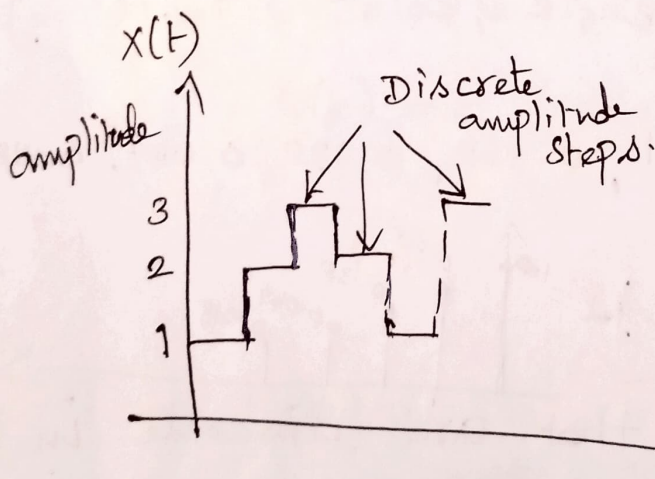 X(t)
amplitude
Discrete
amplitude
steps.
3
2
1